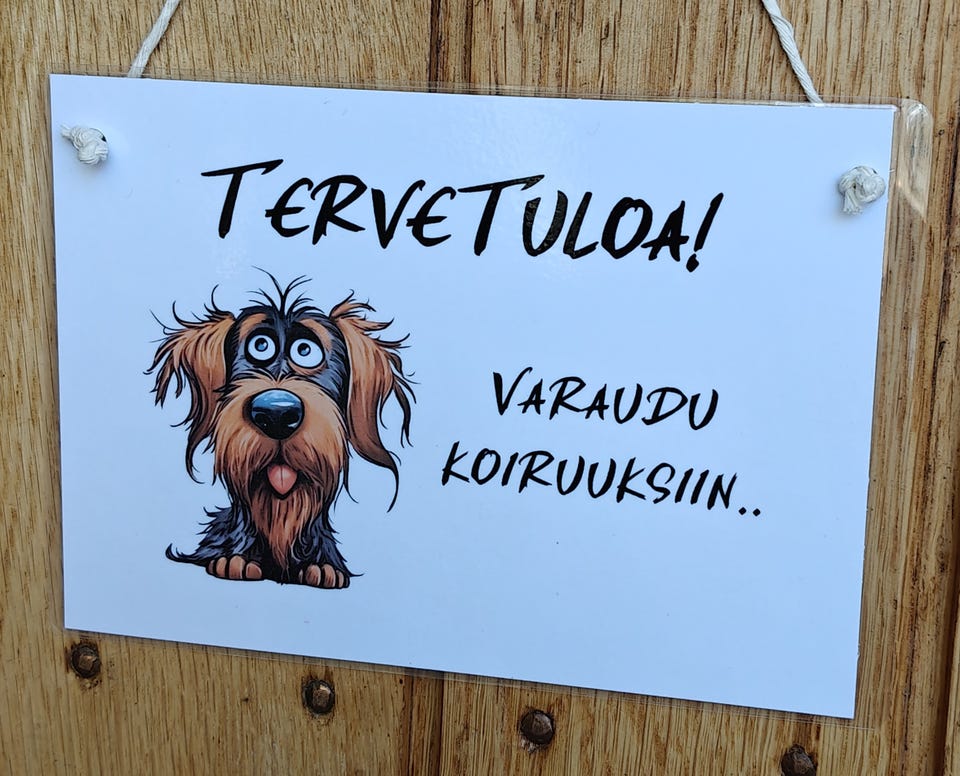 TERVETULOA!
VARAUDU
KOIRUUKSIIN..